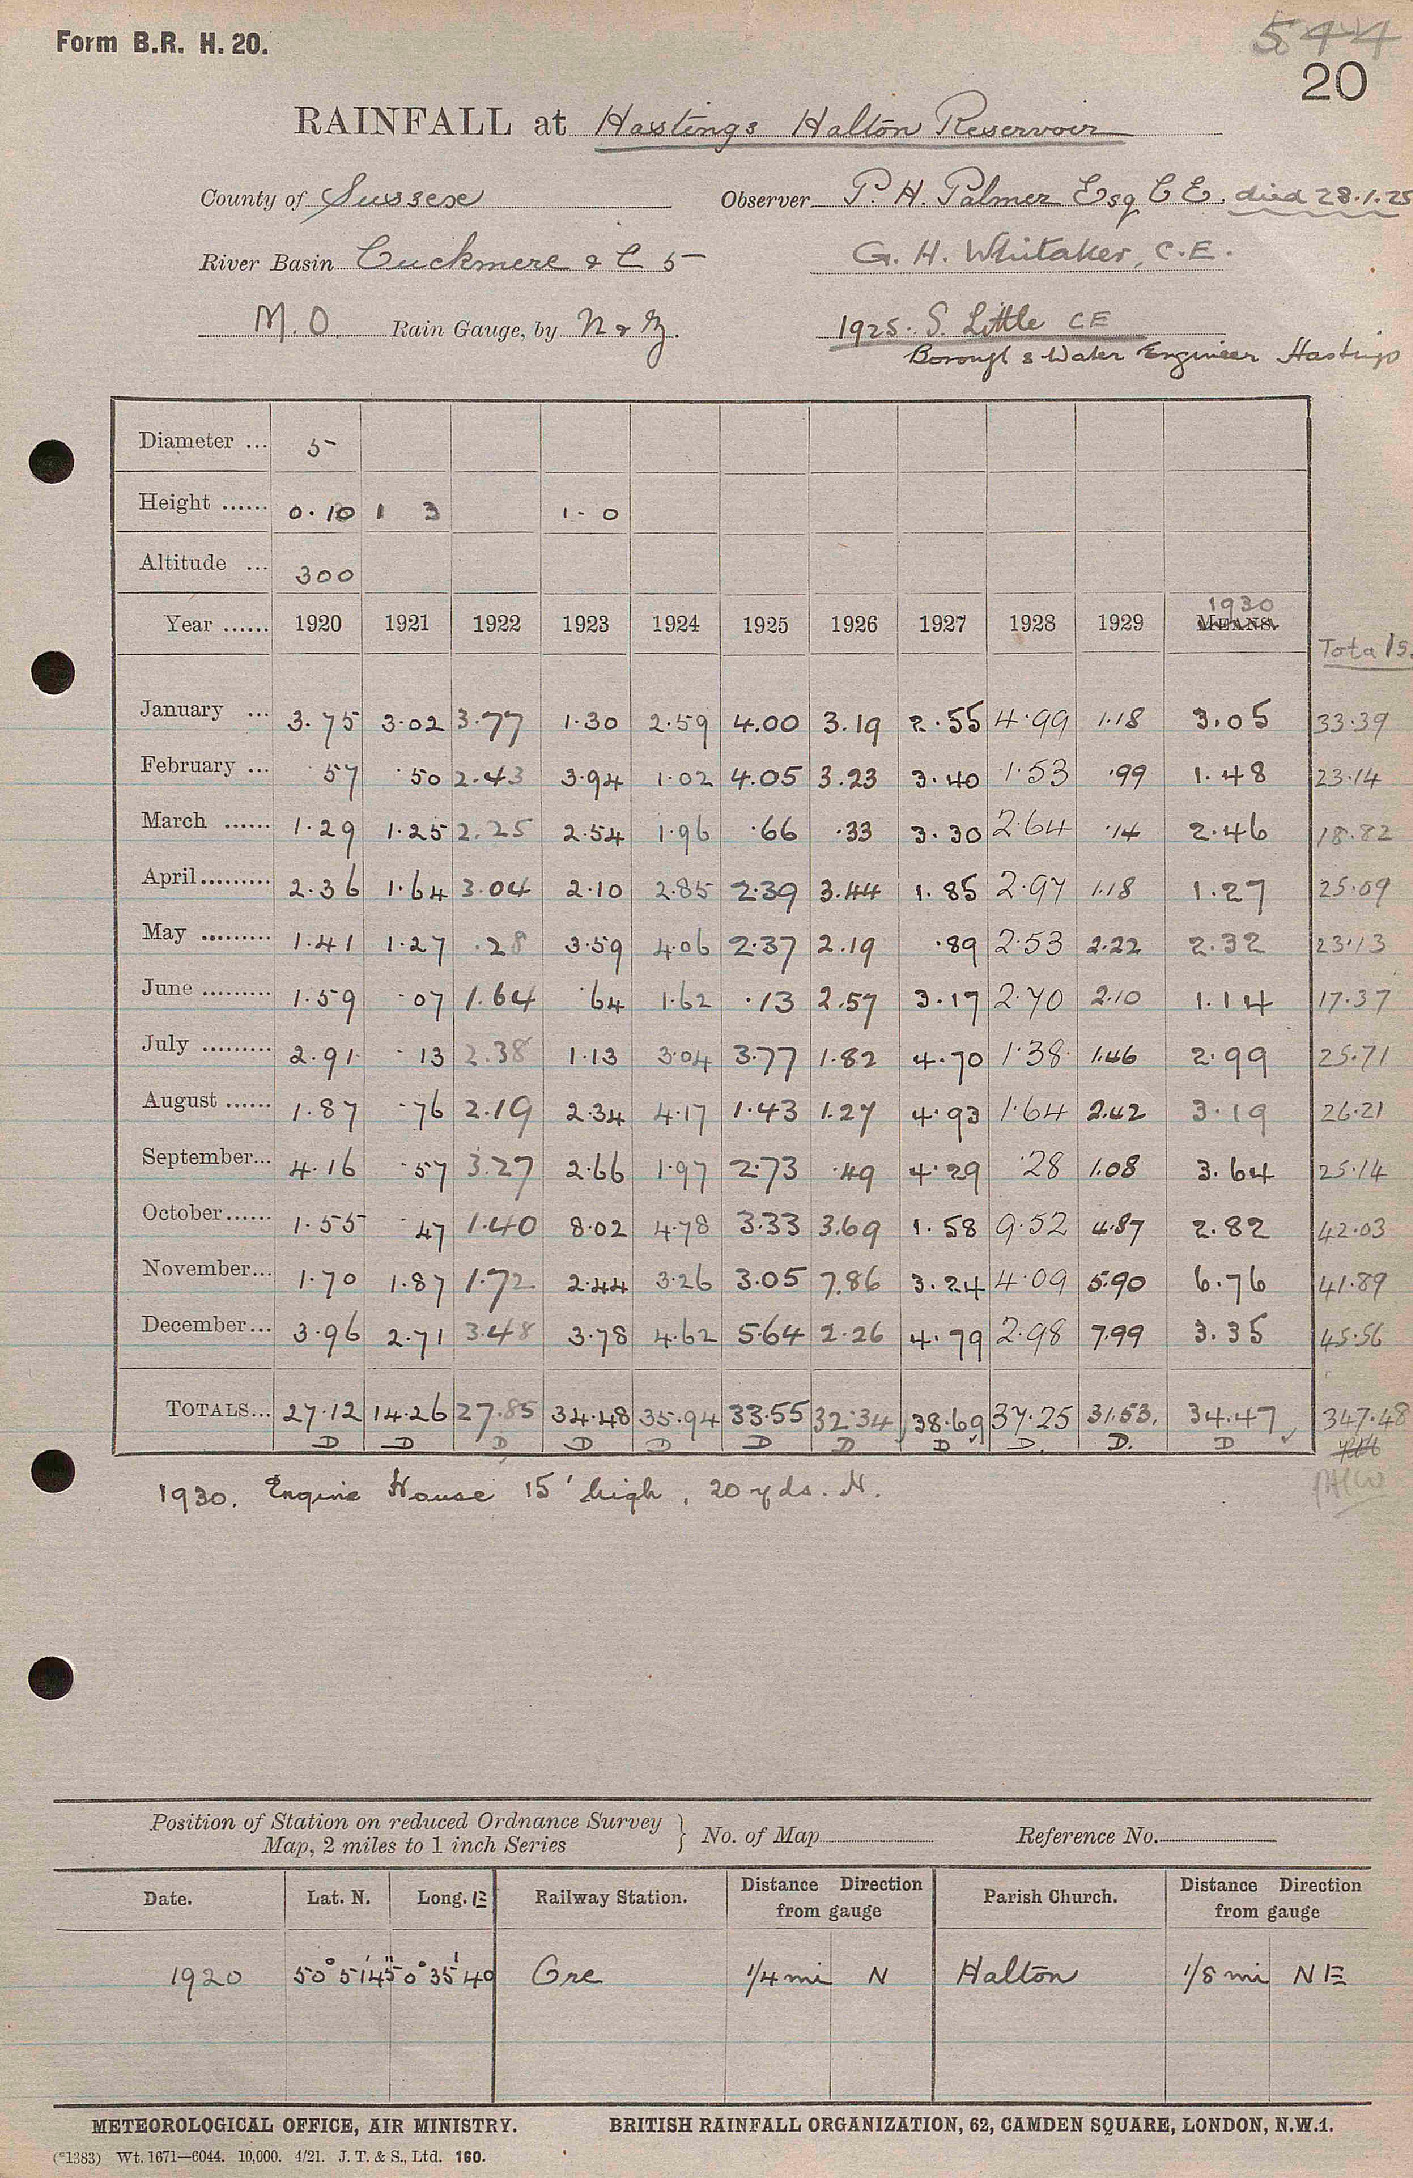 Form B.R. H. 20.
544
20
RAINFALL at Hastings Halton Reservoir
County of Sussex Observer P. H. Palmer Esq C E. died 28.1.25
River Basin Cuckmere & C 5 G. H. Whitaker, C.E.
M.O. Rain Gauge, by N & Z. 1925. S. Little CE
Borough & Water Engineer Hastings
Diameter ... 5
Height ...... 0.10 1 3 1.0
Altitude ... 300
Year ...... 1920 1921 1922 1923 1924 1925 1926 1927 1928 1929 1930 MEANS. Totals.
January ... 3.75 3.02 3.77 1.30 2.59 4.00 3.19 2.55 4.99 1.18 3.05 33.39
February ... .57 .50 2.43 3.94 1.02 4.05 3.23 3.40 1.53 .99 1.48 23.14
March ...... 1.29 1.25 2.25 2.54 1.96 .66 .33 3.30 2.64 .14 2.46 18.82
April ......... 2.36 1.64 3.04 2.10 2.85 2.39 3.44 1.85 2.97 1.18 1.27 25.09
May ......... 1.41 1.27 .28 3.59 4.06 2.37 2.19 .89 2.53 2.22 2.32 23.13
June ......... 1.59 .07 1.64 .64 1.62 .13 2.57 3.17 2.70 2.10 1.14 17.37
July ......... 2.91 .13 2.38 1.13 3.04 3.77 1.82 4.70 1.38 1.46 2.99 25.71
August ...... 1.87 .76 2.19 2.34 4.17 1.43 1.27 4.93 1.64 2.42 3.19 26.21
September... 4.16 .57 3.27 2.66 1.97 2.73 .49 4.29 .28 1.08 3.64 25.14
October...... 1.55 .47 1.40 8.02 4.78 3.33 3.69 1.58 9.52 4.87 2.82 42.03
November... 1.70 1.87 1.72 2.44 3.26 3.05 7.86 3.24 4.09 5.90 6.76 41.89
December... 3.96 2.71 3.48 3.78 4.62 5.64 2.26 4.79 2.98 7.99 3.35 45.56
TOTALS... 27.12 14.26 27.85 34.48 35.94 33.55 32.34 38.69 37.25 31.53. 34.47 347.48
D D D D D D D D D. D. D
1930. Engine House 15' high, 20 yds. N.
Position of Station on reduced Ordnance Survey
Map, 2 miles to 1 inch Series } No. of Map Reference No.
Date. Lat. N. Long. E Railway Station. Distance Direction from gauge Parish Church. Distance Direction from gauge
1920 50° 51' 45" 0° 35' 40 Ore 1/4 mi N Halton 1/8 mi NE
METEOROLOGICAL OFFICE, AIR MINISTRY. BRITISH RAINFALL ORGANIZATION, 62, CAMDEN SQUARE, LONDON, N.W.1.
(*1383) Wt. 1671—6044. 10,000. 4/21. J. T. & S., Ltd. 160.